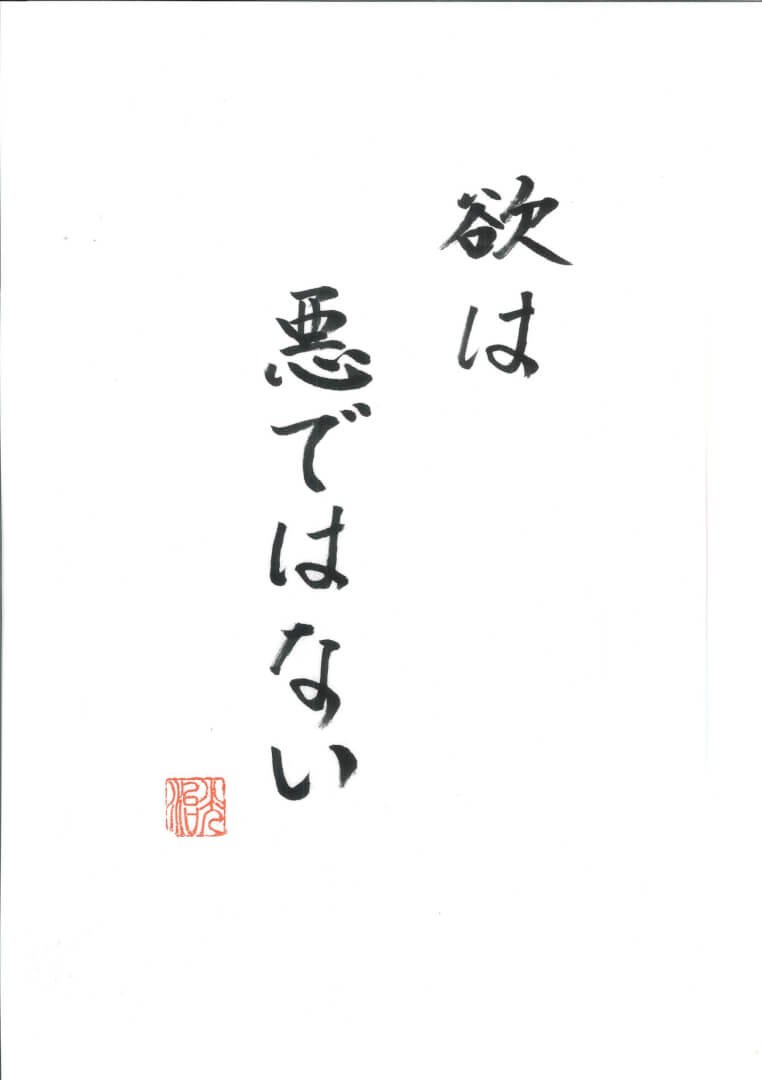 欲は
悪ではない